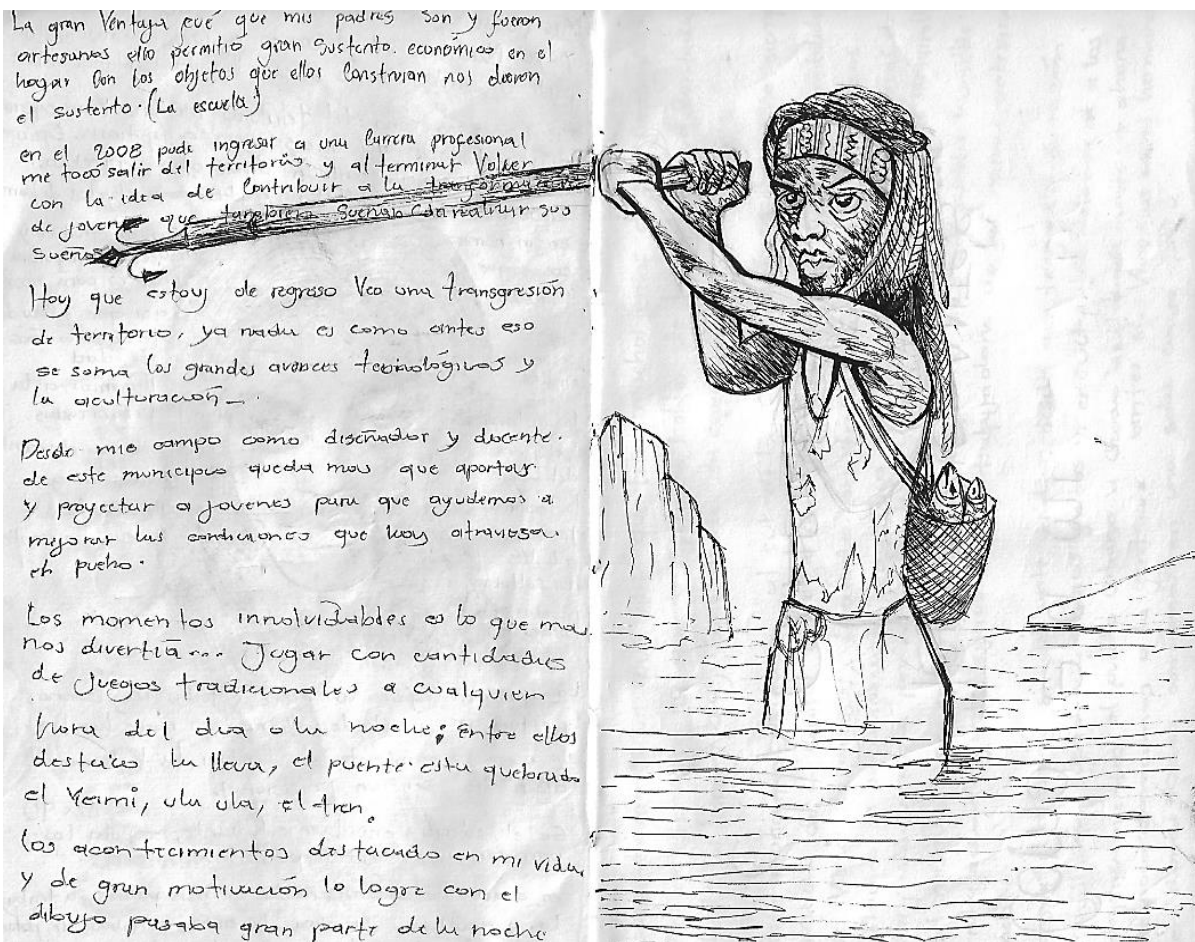 La gran Ventaja fué que mis padres son y fueron
artesanos ello permitió gran sustento. económico en el
hogar con los objetos que ellos construian nos dieron
el sustento. (La escuela)
en el 2008 pude ingresar a una Carrera profesional
me tocó salir del territorio y al terminar Volver
con la idea de Contribuir a la
de jovenes que sueñan sus
sueños
Hoy que estoy de regreso Veo una transgresión
de territorio, ya nada es como antes eso
se suma los grandes avances tecnológicos y
la aculturación_.
Desde mis campo como diseñador y docente.
de este municipio queda mas que aportar
y proyectar a jovenes para que ayudemos a
mejorar las condiciones que hoy atraviesa.
el pueblo.
Los momentos innolvidables es lo que mas
nos divertia... Jugar con cantidades
de Juegos tradicionales a cualquien
hora del dia o la noche; entre ellos
destaco la lleva, el puente esta quebrado
el Yermi, ula ula, el tren.
los acontecimientos destacado en mi vida,
y de gran motivación lo logre con el
dibujo pasaba gran parte de la noche